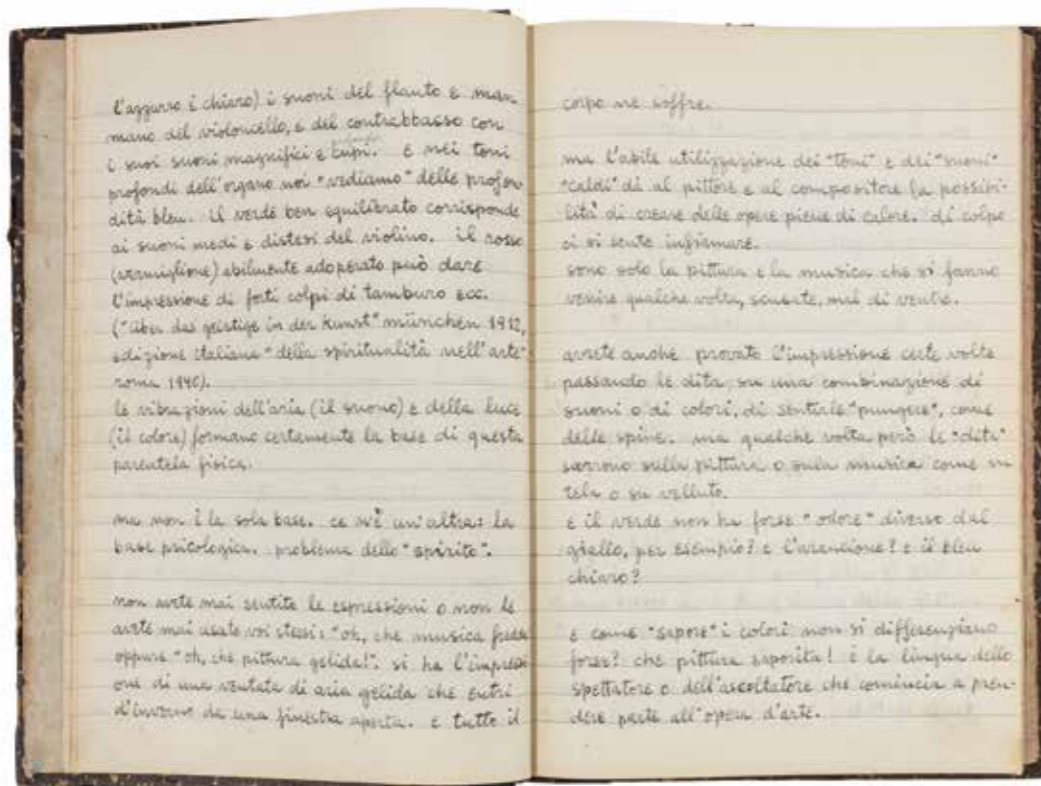 l'azzurro è chiaro) i suoni del flauto e man
mano del violoncello, e del contrabbasso con
i suoi suoni magnifici e cupi. e nei toni
profondi dell'organo noi "vediamo" delle profon-
dità bleu. il verde ben equilibrato corrisponde
ai suoni medi e distesi del violino. il rosso
(vermiglione) abilmente adoperato può dare
l'impressione di forti colpi di tamburo ecc.
("über das geistige in der kunst" münchen 1912,
edizione italiana "della spiritualità nell'arte"
roma 1940).
le vibrazioni dell'aria (il suono) e della luce
(il colore) formano certamente la base di questa
parentela fisica.
ma non è la sola base. ce n'è un'altra: la
base psicologica. problema dello "spirito".
non avete mai sentite le espressioni o non le
avete mai usate voi stessi: "oh, che musica fredda
oppure "oh, che pittura gelida!". si ha l'impressi
one di una ventata di aria gelida che entri
d'inverno da una finestra aperta. e tutto il
corpo ne soffre.
ma l'abile utilizzazione dei "toni" e dei "suoni"
"caldi" dà al pittore e al compositore la possibi-
lità di creare delle opere piene di calore. di colpo
ci si sente infiammare.
sono solo la pittura e la musica che si fanno
venire qualche volta, scusate, mal di ventre.
avrete anche provato l'impressione certe volte
passando le dita su una combinazione di
suoni o di colori, di sentirle "pungere", come
delle spine. ma qualche volta però le "dita"
scorrono sulla pittura o sula musica come su
tela o su velluto.
e il verde non ha forse "odore" diverso dal
giallo, per esempio? e l'arancione? e il bleu
chiaro?
e come "sapore" i colori non si differenziano
forse? che pittura saporita! è la lingua dello
spettatore o dell'ascoltatore che comincia a pren-
dere parte all'opera d'arte.